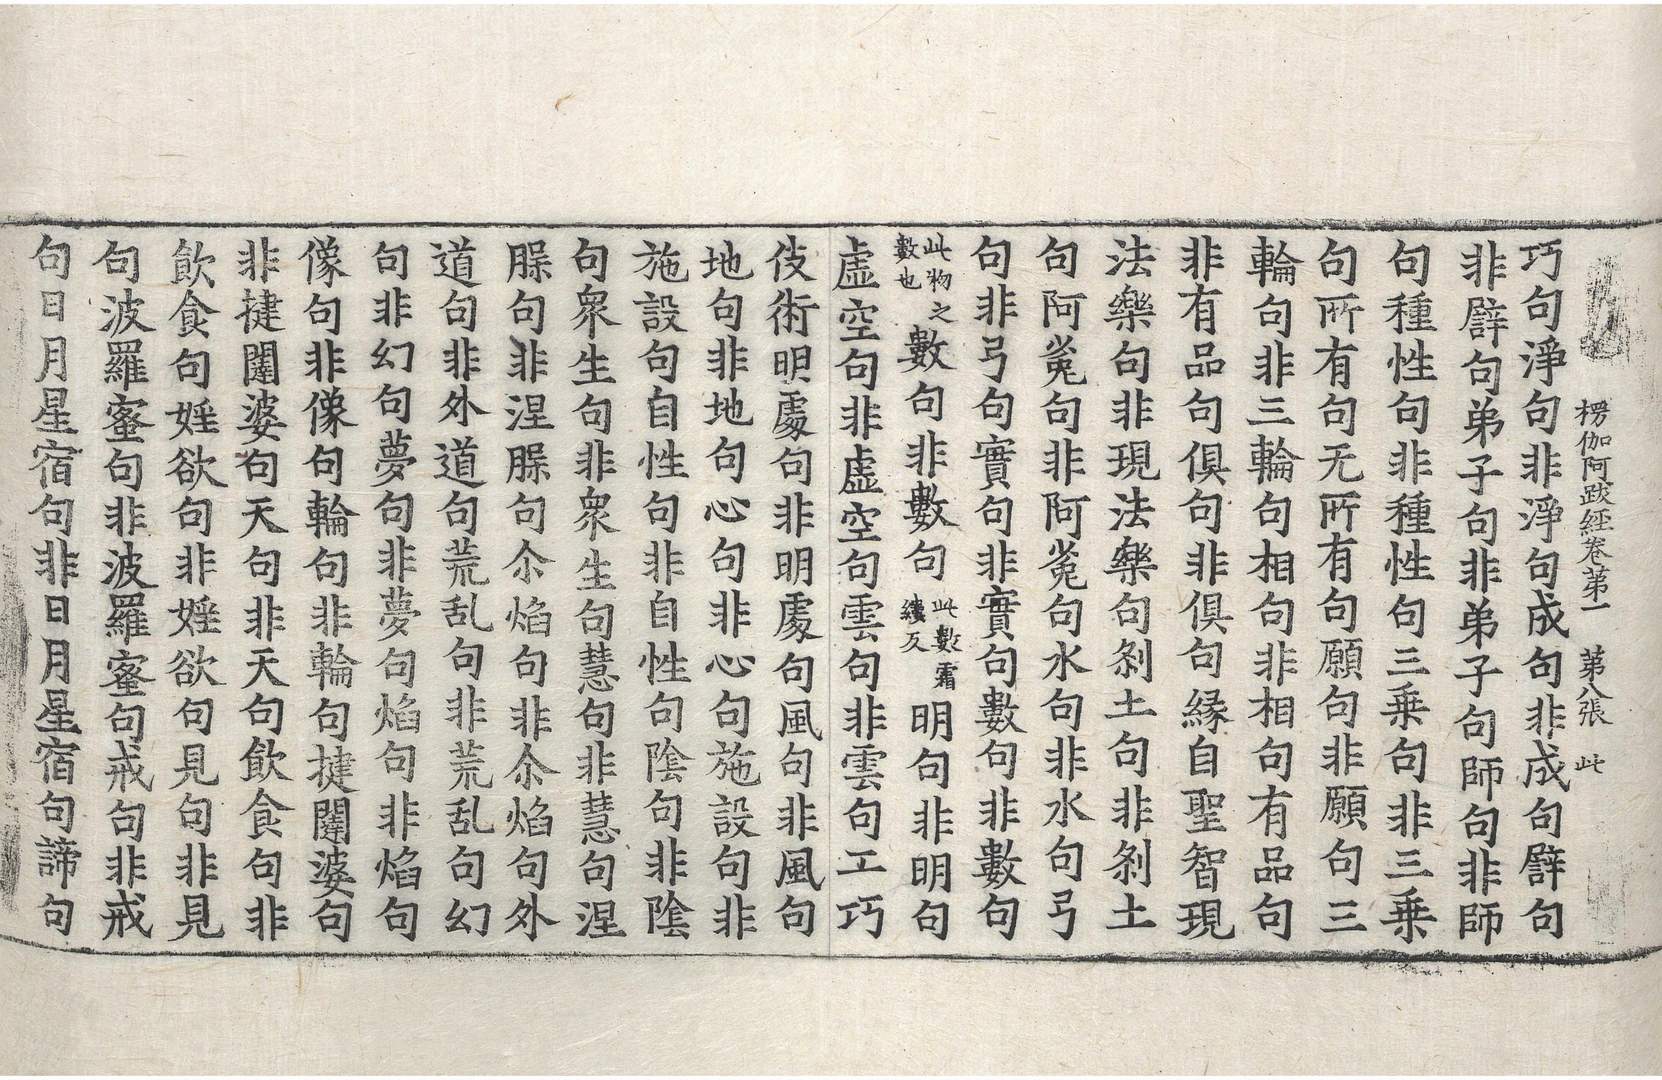 楞伽阿跋經卷第一　第八張　此
巧句淨句非淨句成句非成句譬句
非譬句弟子句非弟子句師句非師
句種性句非種性句三乗句非三乗
句所有句无所有句願句非願句三
輪句非三輪句相句非相句有品句
非有品句俱句非俱句緣自聖智現
法樂句非現法樂句剎土句非剎土
句阿㝹句非阿㝹句水句非水句弓
句非弓句實句非實句數句非數句
此物之數也數句非數句此數霜縷反明句非明句
虛空句非虛空句雲句非雲句工巧
伎術明處句非明處句風句非風句
地句非地句心句非心句施設句非
施設句自性句非自性句陰句非陰
句衆生句非衆生句慧句非慧句涅
槃句非涅槃句尒焰句非尒焰句外
道句非外道句荒乱句非荒乱句幻
句非幻句夢句非夢句焰句非焰句
像句非像句輪句非輪句揵闥婆句
非揵闥婆句天句非天句飲食句非
飲食句婬欲句非婬欲句見句非見
句波羅蜜句非波羅蜜句戒句非戒
句日月星宿句非日月星宿句諦句